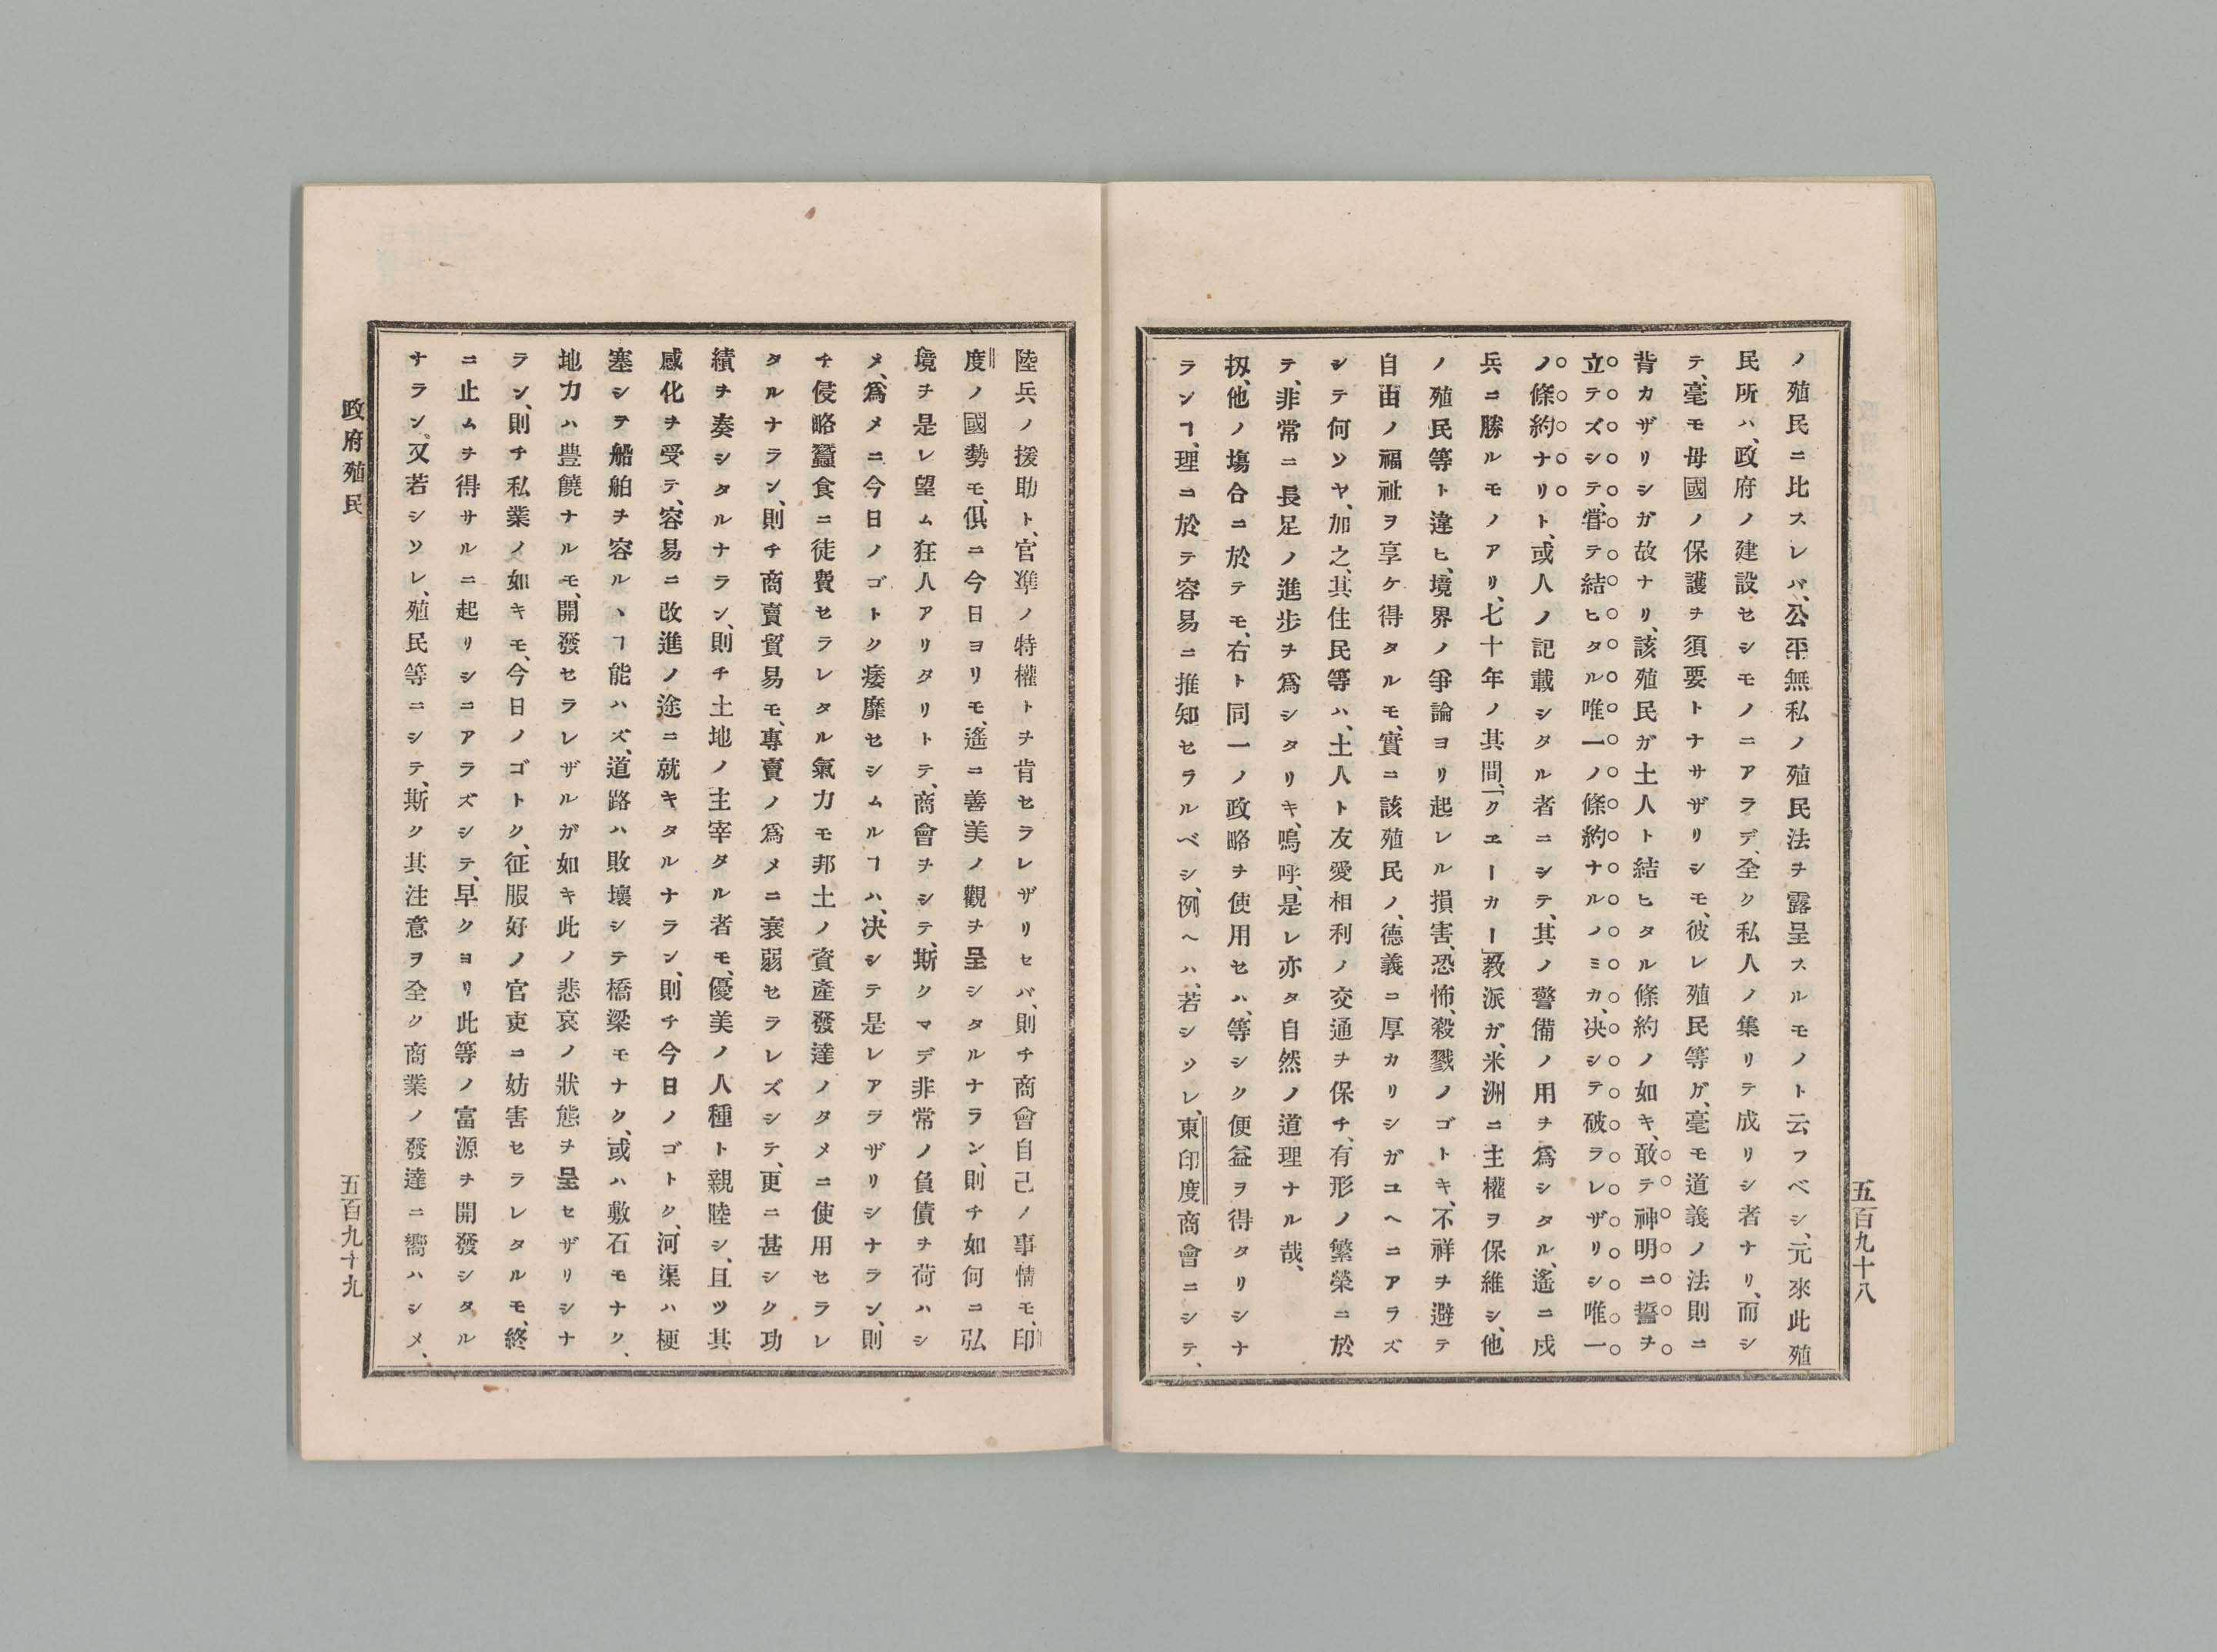 五百九十八
ノ殖民ニ比スレバ、公平無私ノ殖民法ヲ露呈スルモノト云フベシ、元來此殖
民所ハ、政府ノ建設セシモノニアラデ、全ク私人ノ集リテ成リシ者ナリ、而シ
テ、毫モ母國ノ保護ヲ須要トナサザリシモ、彼レ殖民等ガ、毫モ道義ノ法則ニ
背カザリシガ故ナリ、該殖民ガ土人ト結ヒタル條約ノ如キ、敢テ神明ニ誓ヲ
立テズシテ、甞テ結ヒタル唯一ノ條約ナルノミカ、決シテ破ラレザリシ唯一
ノ條約ナリト、或人ノ記載シタル者ニシテ、其ノ警備ノ用ヲ爲シタル、遙ニ戍
兵ニ勝ルモノアリ、七十年ノ其間、「クヱーカー」教派ガ、米洲ニ主權ヲ保維シ、他
ノ殖民等ト違ヒ、境界ノ爭論ヨリ起レル損害、恐怖、殺戮ノゴトキ、不祥ヲ避テ
自由ノ福祉ヲ享ケ得タルモ、實ニ該殖民ノ、德義コ厚カリシガユヘニアラズ
シテ何ソヤ、加之、其住民等ハ、土人ト友愛相利ノ交通ヲ保チ、有形ノ繁榮ニ於
テ、非常ニ長足ノ進步ヲ爲シタリキ、嗚呼、是レ亦タ自然ノ道理ナル哉、
扨、他ノ塲合ニ於テモ、右ト同一ノ政略ヲ使用セハ、等シク便益ヲ得タリシナ
ランヿ、理コ於テ容易ニ推知セラルベシ、例ヘハ、若シソレ、東印度商會ニシテ、
陸兵ノ援助ト、官準ノ特權トヲ肯セラレザリセバ、則チ商會自己ノ事情モ、印
度ノ國勢モ、俱ニ今日ヨリモ、遙ニ善美ノ觀ヲ呈シタルナラン、則チ如何ニ弘
境ヲ是レ望ム狂人アリタリトテ、商會ヲシテ、斯クマデ非常ノ負債ヲ荷ハシ
メ、爲メニ今日ノゴトク痿靡セシムルヿハ、決シテ是レアラザリシナラン、則
チ侵略蠶食ニ徒費セラレタル氣力モ邦土ノ資產發達ノタメニ使用セラレ
タルナラン、則チ商賣貿易モ、專賣ノ爲メニ衰弱セラレズシテ、更ニ甚シク功
績ヲ奏シタルナラン、則チ土地ノ主宰タル者モ、優美ノ人種ト親睦シ、且ツ其
感化ヲ受テ、容易ニ改進ノ途ニ就キタルナラン、則チ今日ノゴトク、河渠ハ梗
塞シテ船舶ヲ容ルヽヿ能ハズ、道路ハ敗壞シテ橋梁モナク、或ハ敷石モナク、
地力ハ豊饒ナルモ、開發セラレザルガ如キ此ノ悲哀ノ狀態ヲ呈セザリシナ
ラン、則チ私業ノ如キモ、今日ノゴトク、征服好ノ官吏コ妨害セラレタルモ、終
ニ止ムヲ得サルニ起リシニアラズシテ、早クヨリ此等ノ富源ヲ開發シタル
ナラン、又若シソレ、殖民等ニシテ、斯ク其注意ヲ全ク商業ノ發達ニ嚮ハシメ、
政府殖民
五百九十九